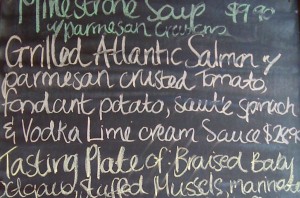 Minestrone Soup $9.90
w/parmesan croutons
Grilled Atlantic Salmon w/
parmesan crusted Tomato,
fondant potato, sauté spinach
& Vodka Lime cream Sauce
Tasting Plate of: Braised Baby
stuffed Mussels,